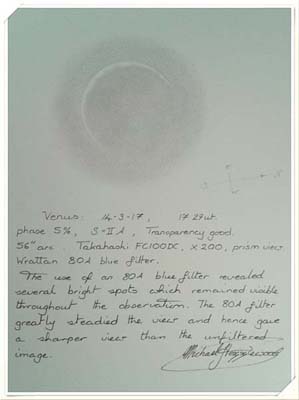 Venus: 14-3-17, 17.29ut.
phase 5%, S-IIA, Transparency good.
56" arc. Takahashi FC100DC, X200, prism view
Wratten 80A blue filter.
The use of an 80A blue filter revealed
several bright spots which remained visible
throughout the observation. The 80A filter
greatly steadied the view and hence gave
a sharper view than the unfiltered
image.